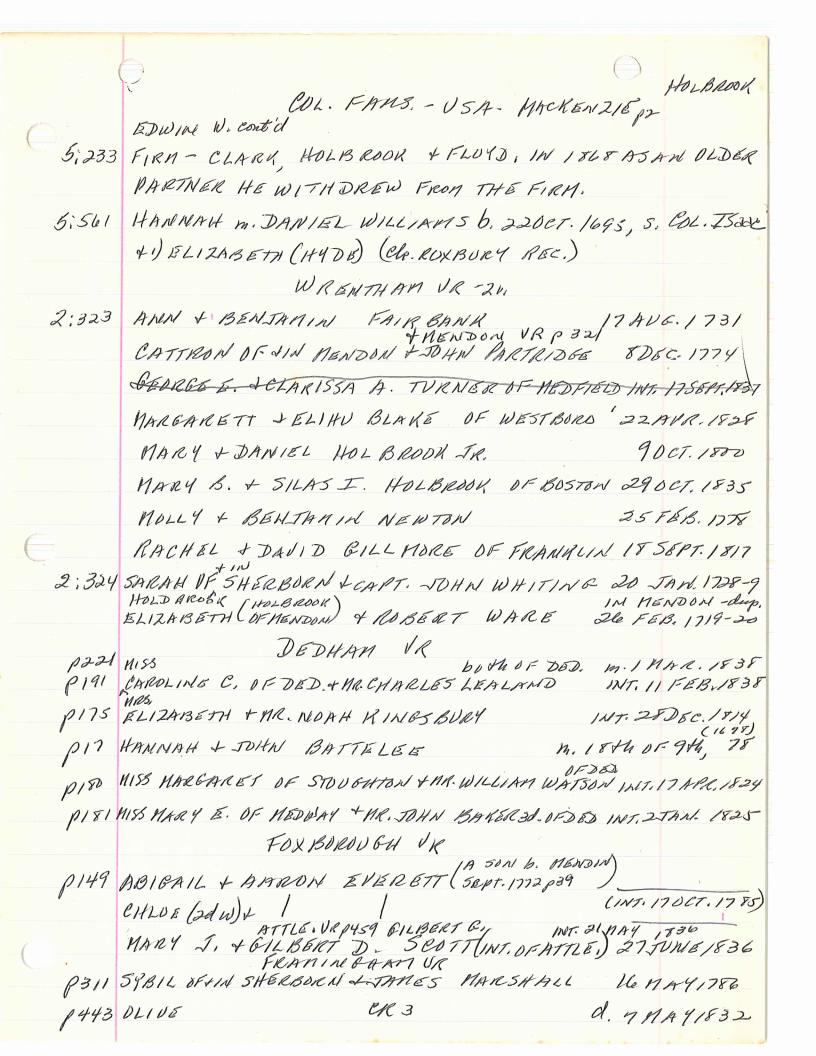 HOLBROOK
COL. FAMS. - USA - MACKENZIE p2
EDWIN W. cont'd
5:233 FIRM - CLARK, HOLBROOK & FLOYD, IN 1868 AS AN OLDER
PARTNER HE WITHDREW FROM THE FIRM.
5:561 HANNAH m. DANIEL WILLIAMS b. 22 OCT. 1695, s. COL. ISAAC
&1) ELIZABETH (HYDE) (Ch. ROXBURY REC.)
WRENTHAM VR - 2v.
2:323 ANN & BENJAMIN FAIRBANK 17 AUG. 1731
& MENDON VR p 321
CATTRON OF & IN MENDON & JOHN PARTRIDGE 8 DEC. 1774
GEORGE E. & CLARISSA A. TURNER OF MEDFIELD INT. 17 SEPT. 1837
MARGARETT & ELIHU BLAKE OF WESTBORO 22 APR. 1828
MARY & DANIEL HOLBROOK JR. 9 OCT. 1800
MARY B. & SILAS I. HOLBROOK OF BOSTON 29 OCT. 1835
MOLLY & BENJAMIN NEWTON 25 FEB. 1778
RACHEL & DAVID GILLMORE OF FRANKLIN 18 SEPT. 1817
& IN
2:324 SARAH OF SHERBORN & CAPT. JOHN WHITING 20 JAN. 1728-9
HOLDAROBK (HOLBROOK) IN MENDON - dup.
ELIZABETH (OF MENDON) & ROBERT WARE 26 FEB. 1719-20
DEDHAM VR
p221 MISS both OF DED. m. 1 MAR. 1838
p191 CAROLINE C. OF DED. & MR. CHARLES LEALAND INT. 11 FEB. 1838
MRS.
p175 ELIZABETH & MR. NOAH KINGSBURY INT. 28 DEC. 1814
(1678)
p17 HANNAH & JOHN BATTELEE m. 18th OF 9th, 78
OF DED
p180 MISS MARGARET OF STOUGHTON & MR. WILLIAM WATSON INT. 17 APR. 1824
p181 MISS MARY E. OF MEDWAY & MR. JOHN BAKER 3d. OF DED INT. 2 JAN. 1825
FOXBOROUGH VR
(A SON b. MENDIN
p149 ABIGAIL & AARON EVERETT SEPT. 1772 p39)
(INT. 17 OCT. 1785)
CHLOE (2d W) &
ATTLE. VR p459 GILBERT G., INT. 21 MAY 1836
MARY J. & GILBERT D. SCOTT (INT. OF ATTLE.) 27 JUNE 1836
FRAMINGHAM VR
p311 SYBIL OF & IN SHERBORN & JAMES MARSHALL 16 MAY 1786
p443 OLIVE CR 3 d. 7 MAY 1832